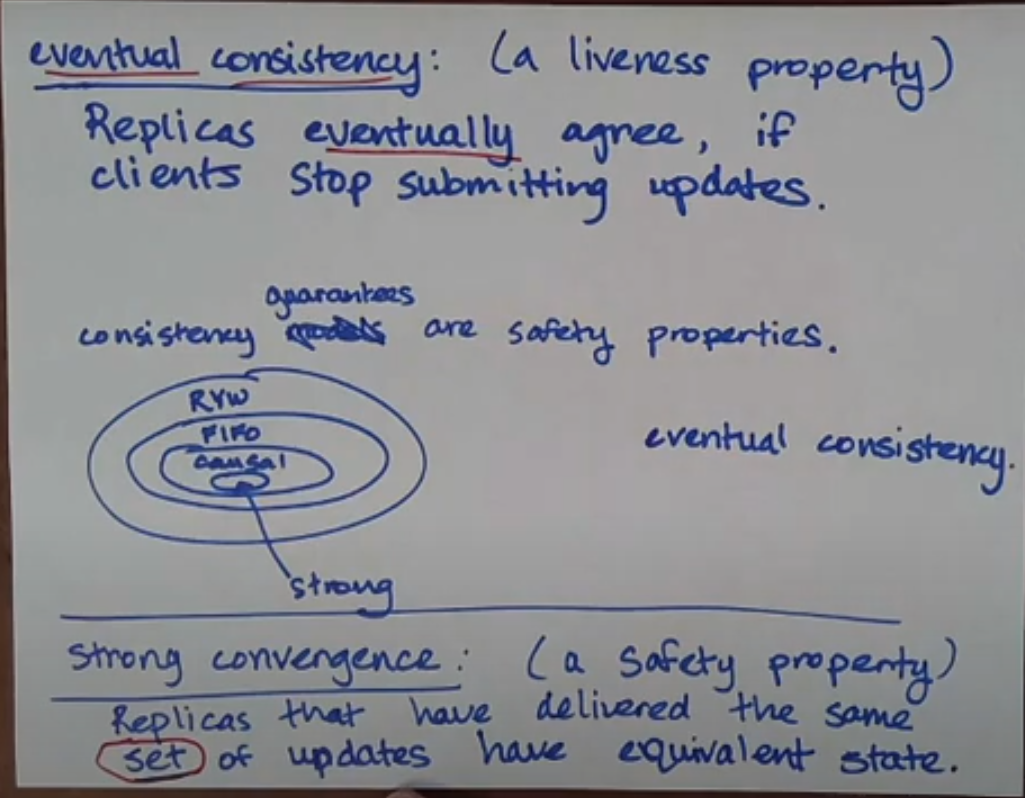 eventual consistency: (a liveness property)
Replicas eventually agree, if
clients stop submitting updates.
guarantees
consistency models are safety properties.
RYW
FIFO
causal
eventual consistency.
strong
strong convergence: (a safety property)
Replicas that have delivered the same
set of updates have equivalent state.